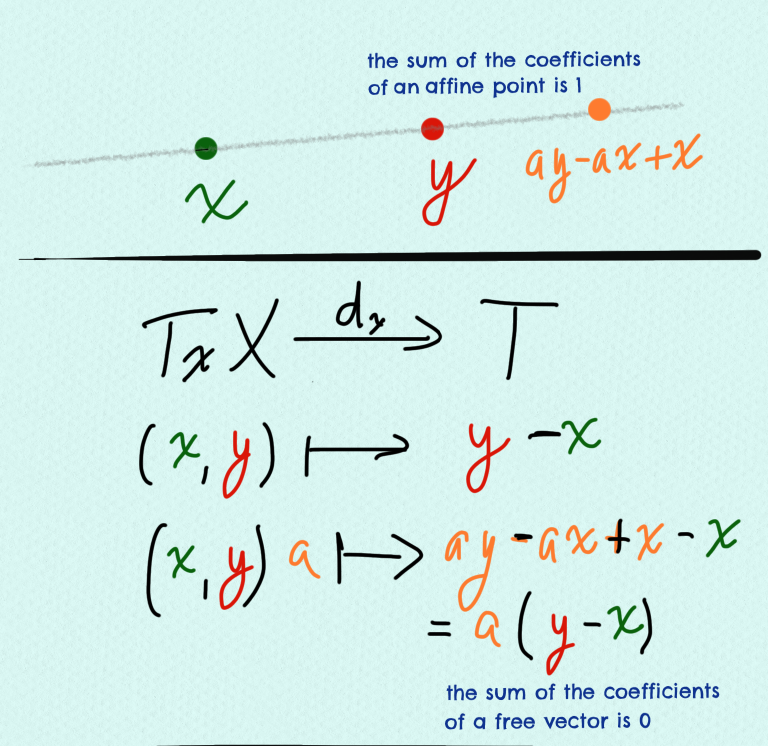 the sum of the coefficients
of an affine point is 1
x y ay-ax+x
TₓX dₓ⟶ T
(x,y) ⟼ y-x
(x,y)a ⟼ ay-ax+x-x
= a(y-x)
the sum of the coefficients
of a free vector is 0